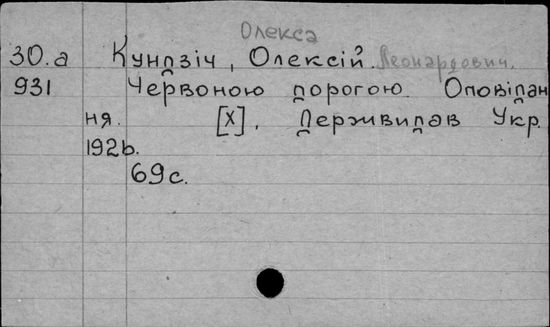 Олекса
30.а Кундзіч, Олексій Леонардович.
931 Червоною дорогою. Оповідан
ня. [Х], Держвидав Укр.
1926.
69 с.